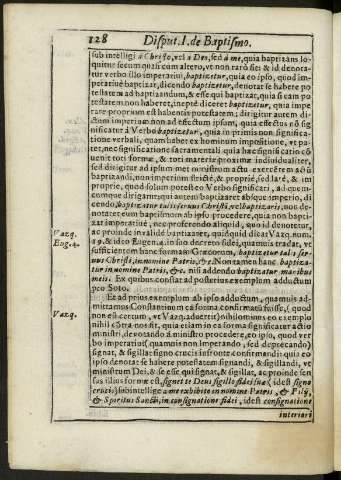 128 Disput. I. de Baptismo.
sub intelligi à Christo, vel à Deo, sed à me, quia baptizans lo-
quitur secum quasi cum altero, vt non rarò fit: & id denota-
tur verbo illo imperativi, baptizetur, quia eo ipso, quod im-
perativè baptizat, dicendo baptizetur, denotat se habere po
testatem ad baptizandum, & esse qui baptizat, quia si eam po
testatem non haberet, ineptè diceret baptizetur, quia impe
rare proprium est habentis potestatem; dirigitur autem di-
ctum imperium non ad effectum ipsum, quia effectus nõ sig
nificatur à Verbo baptizetur, quia in primis non significa-
tione verbali, quam habet ex hominum impositione, vt pa-
tet, nec significatione sacramentali quia hac significatio cõ
uenit toti formæ, & toti materiæ proximæ indiuidualiter,
sed dirigitur ad ipsum met ministrum actu exercẽtem actũ
baptizandi, non imperium strictè, & propriè, sed latè, & im
propriè, quod solum potest eo Verbo significari, ad quem-
cumque dirigatur: qui autem baptizaret absque imperio, di
cendo, baptizatur talis seruus Christi, vel baptizaris, non de-
notaret eum baptismum ab ipso procedere, quia non bapti-
zat imperatiuè, nec proferendo aliquid, quo id denotetur,
Vazq. ac proinde inualidè baptizaret, quidquid dicat Vazq. num.
Euge. 4. 19. & ideo Eugen. 4. in suo decreto fidei, quamuis tradat, vt
sufficientem hanc formam Græcorum, baptizetur talis ser-
uus Christi, in nomine Patris, &c. Non tamen hanc baptiza-
tur in nomine Patris, &c. nisi addendo baptizatur manibus
meis. Ex quibus constat ad posterius exemplum adductum
pro Soto.
Et ad prius exemplum ab ipso adductum, quamuis ad-
Vazq. mittamus Constantinum ea forma confirmatũ fuisse, (quod
non est certum, vt Vazq. aduertit) nihilominus ex eo exemplo
nihil cõtra nos fit, quia etiam in ea forma significatur actio
ministri, denotando à ministro procedere, eo ipso, quod ver
bo imperatiui (quamuis non imperando, sed deprecando)
signat, & sigillat signo crucis in fronte confirmandi: quia eo
ipso denotat se habere potestatem signandi, & sigillandi, vt
ministrum Dei, & se esse qui signat, & sigillat, ac proinde sen
sus illius formæ est, signet te Deus sigillo fidei suæ (idest signo
crucis) subintellige à me exhibito in nomine Patris, & Filij,
& Spiritus Sancti, in consignatione fidei, idest consignatione
interiori